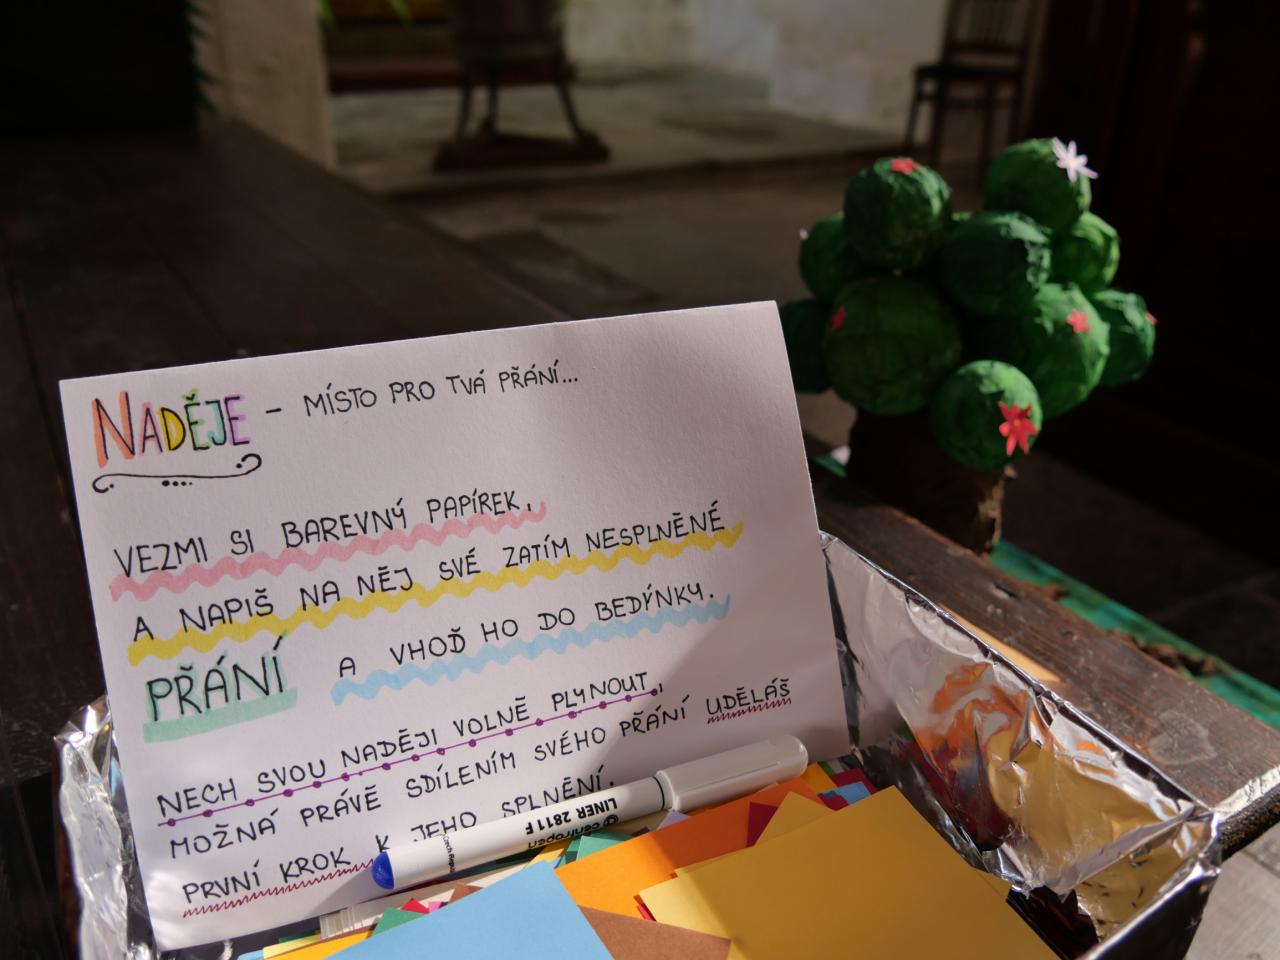 NADĚJE – MÍSTO PRO TVÁ PŘÁNÍ...
VEZMI SI BAREVNÝ PAPÍREK,
A NAPIŠ NA NĚJ SVÉ ZATÍM NESPLNĚNÉ
PŘÁNÍ A VHOĎ HO DO BEDÝNKY.
NECH SVOU NADĚJI VOLNĚ PLYNOUT,
MOŽNÁ PRÁVĚ SDÍLENÍM SVÉHO PŘÁNÍ UDĚLÁŠ
PRVNÍ KROK K JEHO SPLNĚNÍ.
centropen
LINER 2811 F